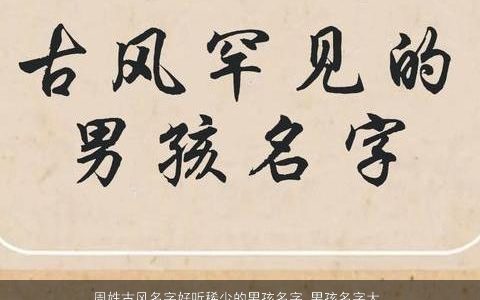 古风罕见的
男孩名字
周姓古风名字好听稀少的男孩名字 男孩名字大